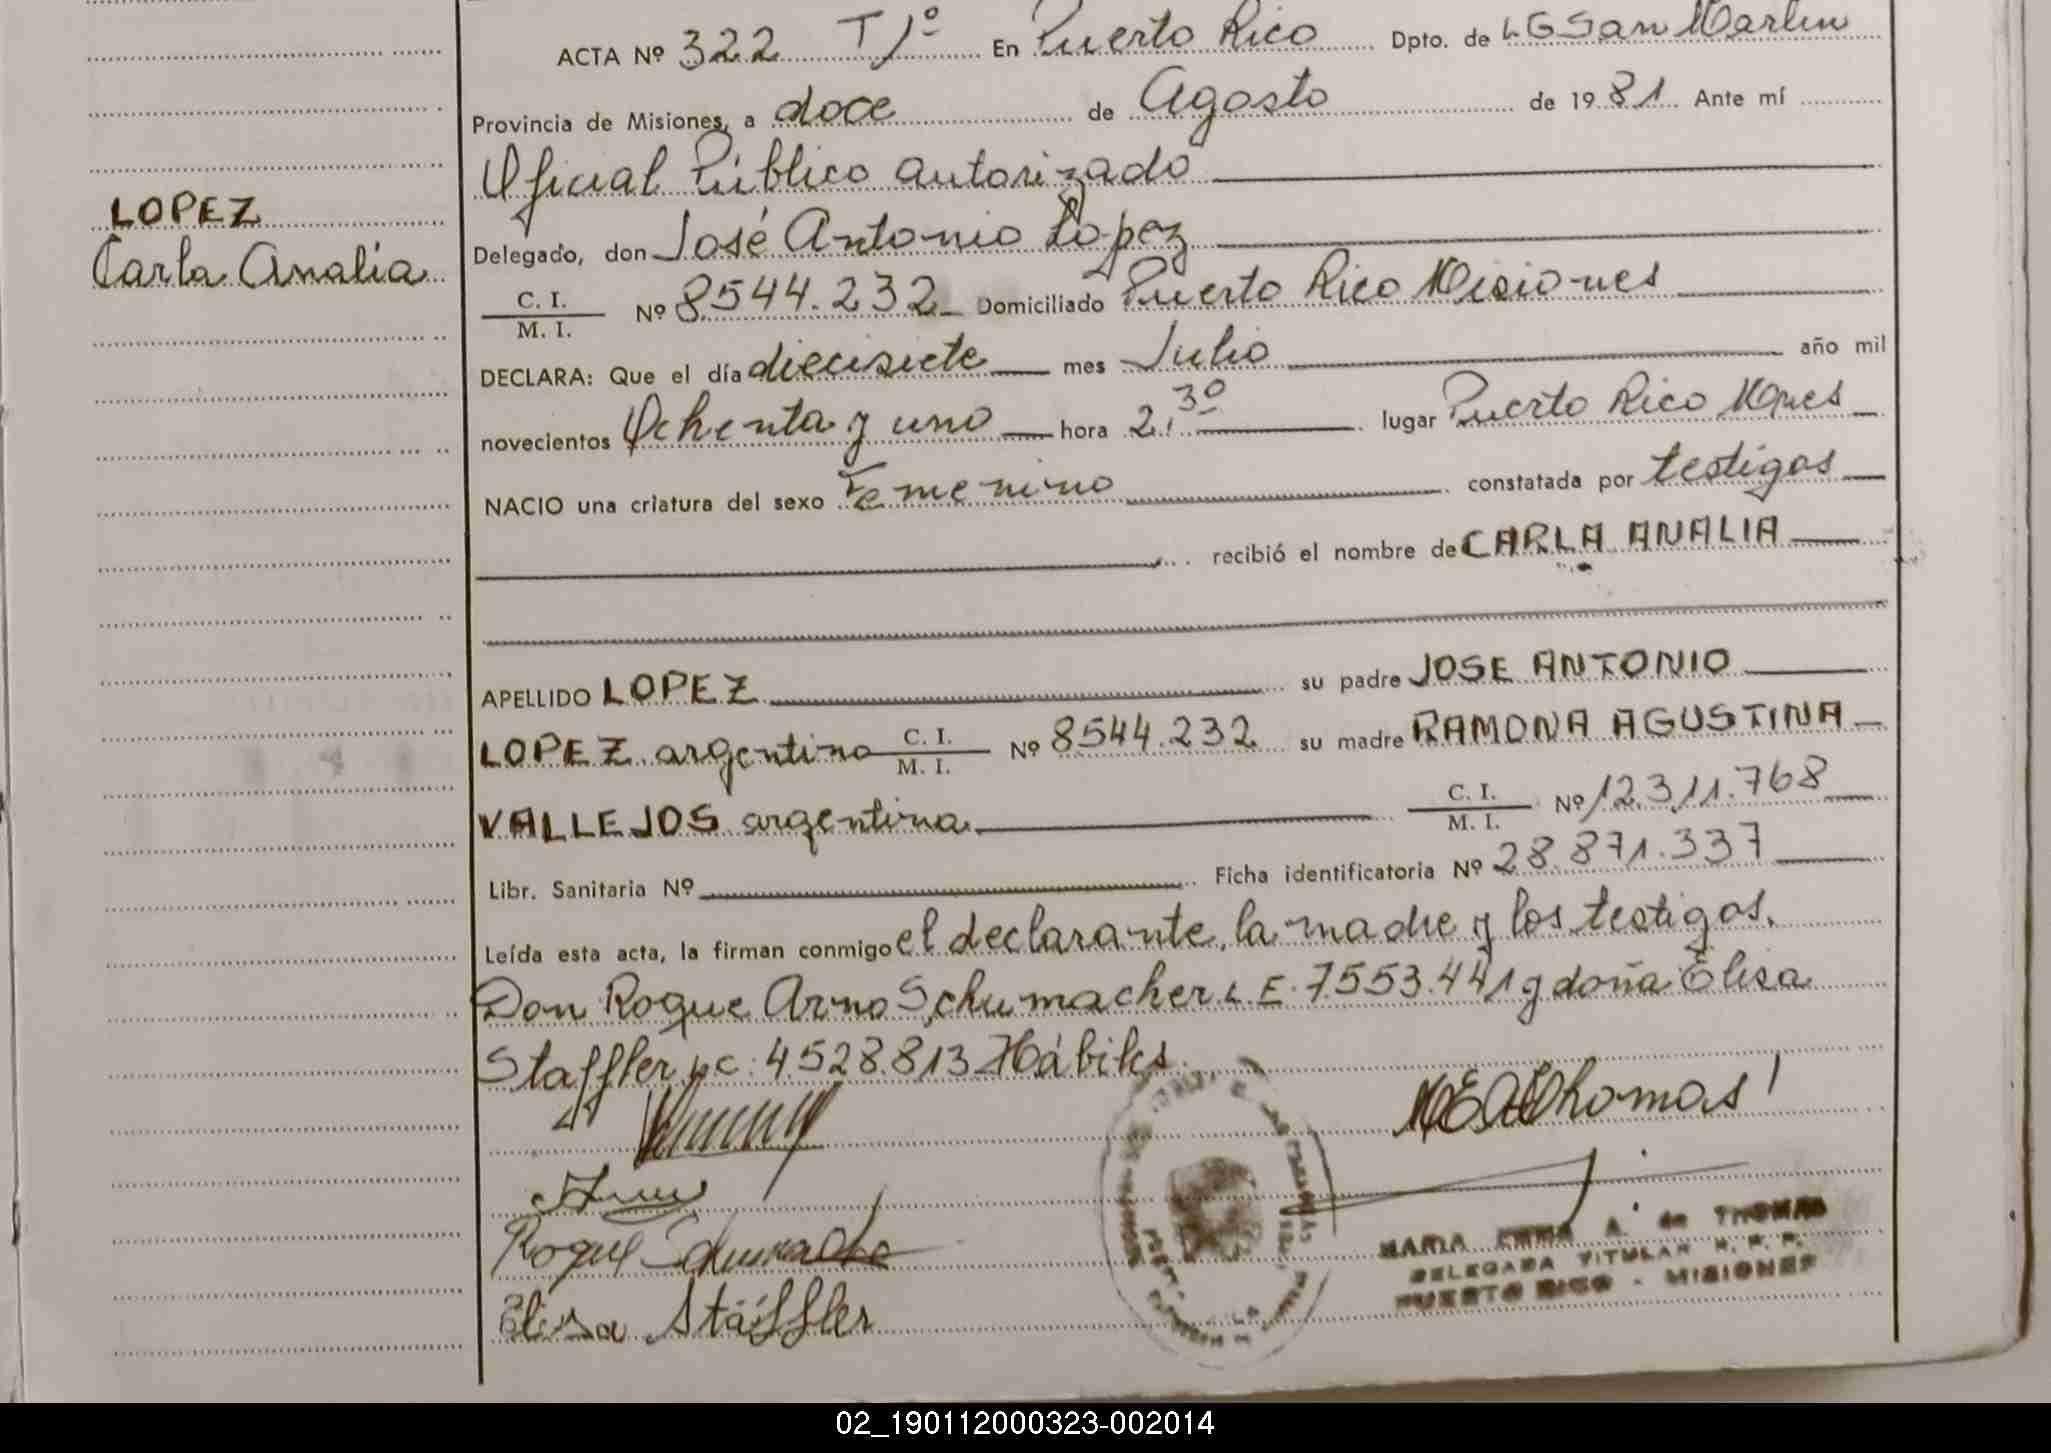 ACTA Nº 322 Tº 1º En Puerto Rico Dpto. de L G San Martin
Provincia de Misiones, a doce de Agosto de 1981 Ante mí
Oficial Público autorizado
LOPEZ
Carla Analia
Delegado, don José Antonio Lopez
C. I.
M. I. Nº 8.544.232 Domiciliado Puerto Rico Misiones
DECLARA: Que el día diecisiete mes Julio año mil
novecientos Ochenta y uno hora 2,30 lugar Puerto Rico Mnes
NACIO una criatura del sexo Femenino constatada por testigos
recibió el nombre de CARLA ANALIA
APELLIDO LOPEZ su padre JOSE ANTONIO
LOPEZ argentino C. I. M. I. Nº 8544.232 su madre RAMONA AGUSTINA
VALLEJOS argentina C. I. M. I. Nº 12.311.768
Libr. Sanitaria Nº Ficha identificatoria Nº 28.871.337
Leída esta acta, la firman conmigo el declarante, la madre y los testigos.
Don Roque Arno Schumacher L E. 7.553.441 y doña Elisa
Staffler LC: 4.528.813 Hábiles
MEAThomas
Roque Schumacher
Elisa Stäffler
MARIA EMMA A. de THOMAS
DELEGADA TITULAR R. P. P.
PUERTO RICO - MISIONES
02_190112000323-002014